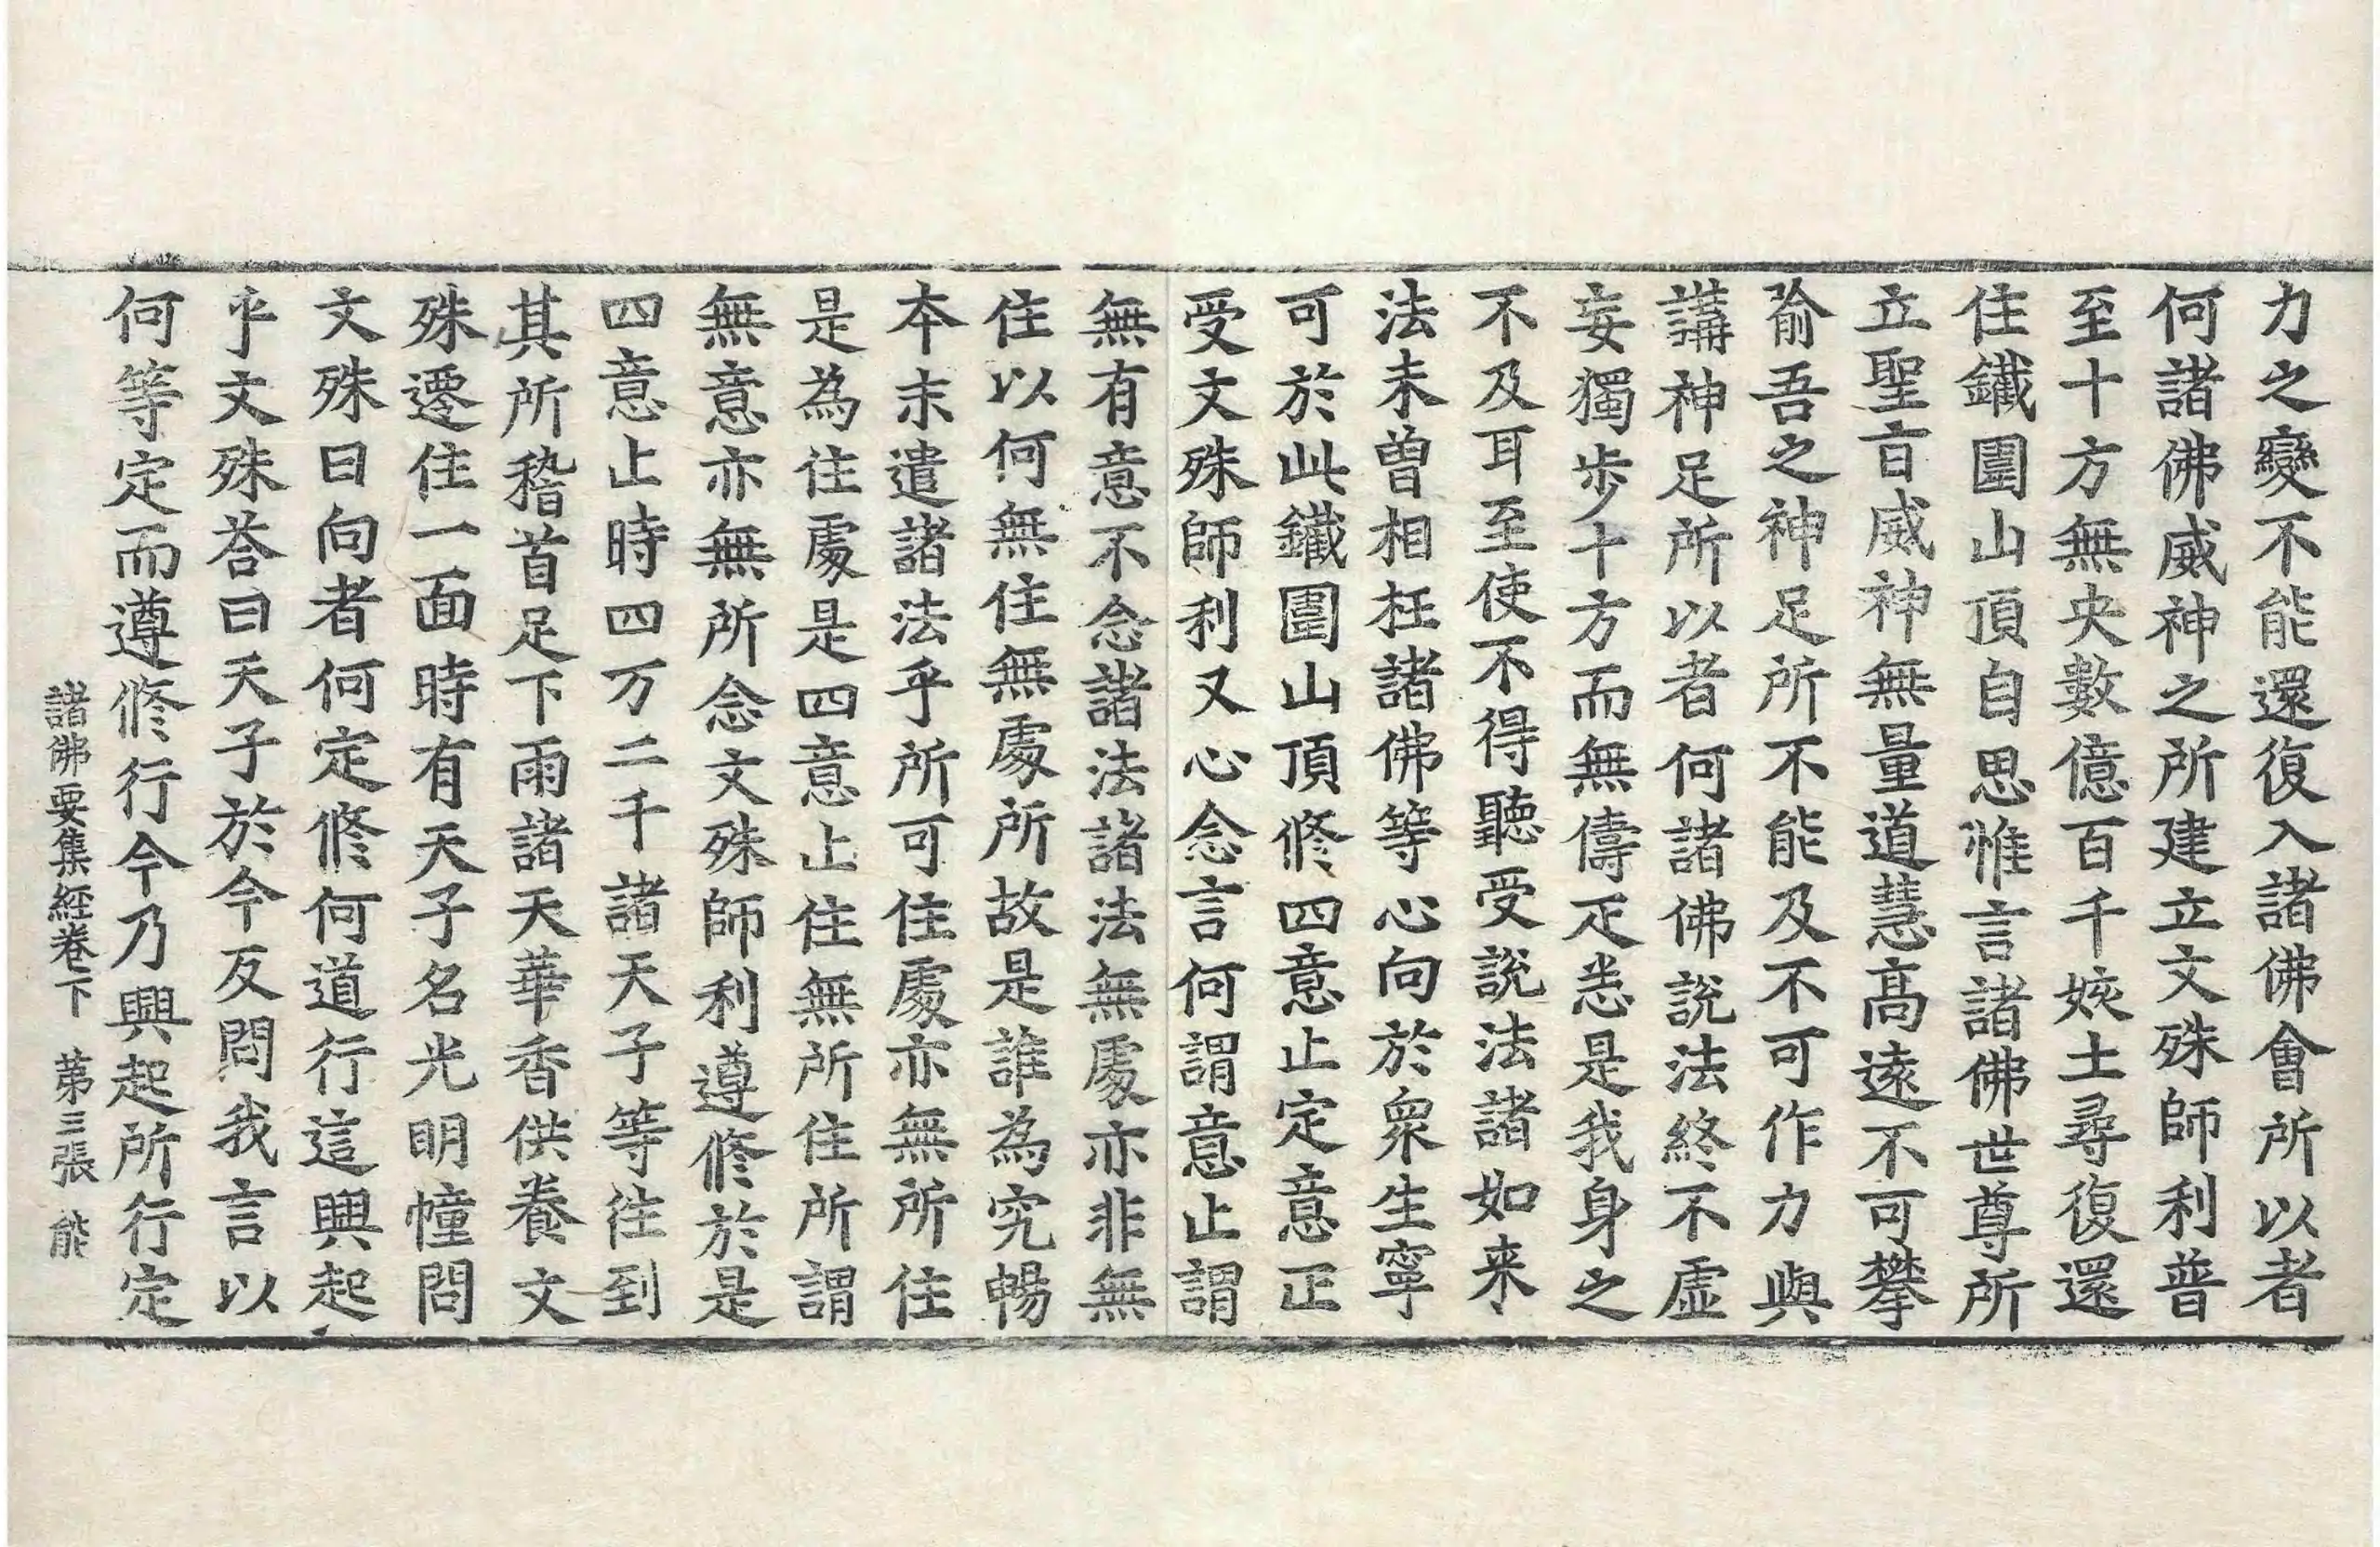 力之變不能還復入諸佛會所以者
何諸佛威神之所建立文殊師利普
至十方無央數億百千姟土尋復還
住鐵圍山頂自思惟言諸佛世尊所
立聖旨威神無量道慧高遠不可攀
喻吾之神足所不能及不可作力與
講神足所以者何諸佛說法終不虛
妄獨步十方而無儔疋悉是我身之
不及耳至使不得聽受說法諸如来
法未曾相枉諸佛等心向於衆生寧
可於此鐵圍山頂修四意止定意正
受文殊師利又心念言何謂意止謂
無有意不念諸法諸法無處亦非無
住以何無住無處所故是誰為究暢
本末遣諸法乎所可住處亦無所住
是為住處是四意止住無所住所謂
無意亦無所念文殊師利遵修於是
四意止時四万二千諸天子等往到
其所稽首足下雨諸天華香供養文
殊遷住一面時有天子名光明幢問
文殊曰向者何定修何道行這興起
乎文殊荅曰天子於今反問我言以
何等定而遵修行今乃興起所行定
諸佛要集経卷下 第三張 能